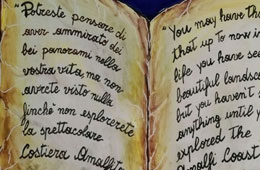 "Potreste pensare di
aver ammirato dei
bei panorami nella
vostra vita, ma non
avrete visto nulla
finchè non esplorerete
la spettacolare
Costiera Amalfit
"You may have tho
that up to now in
life you have see
beautiful landsc
but you haven't s
anything until y
explored the
Amalfi Coast